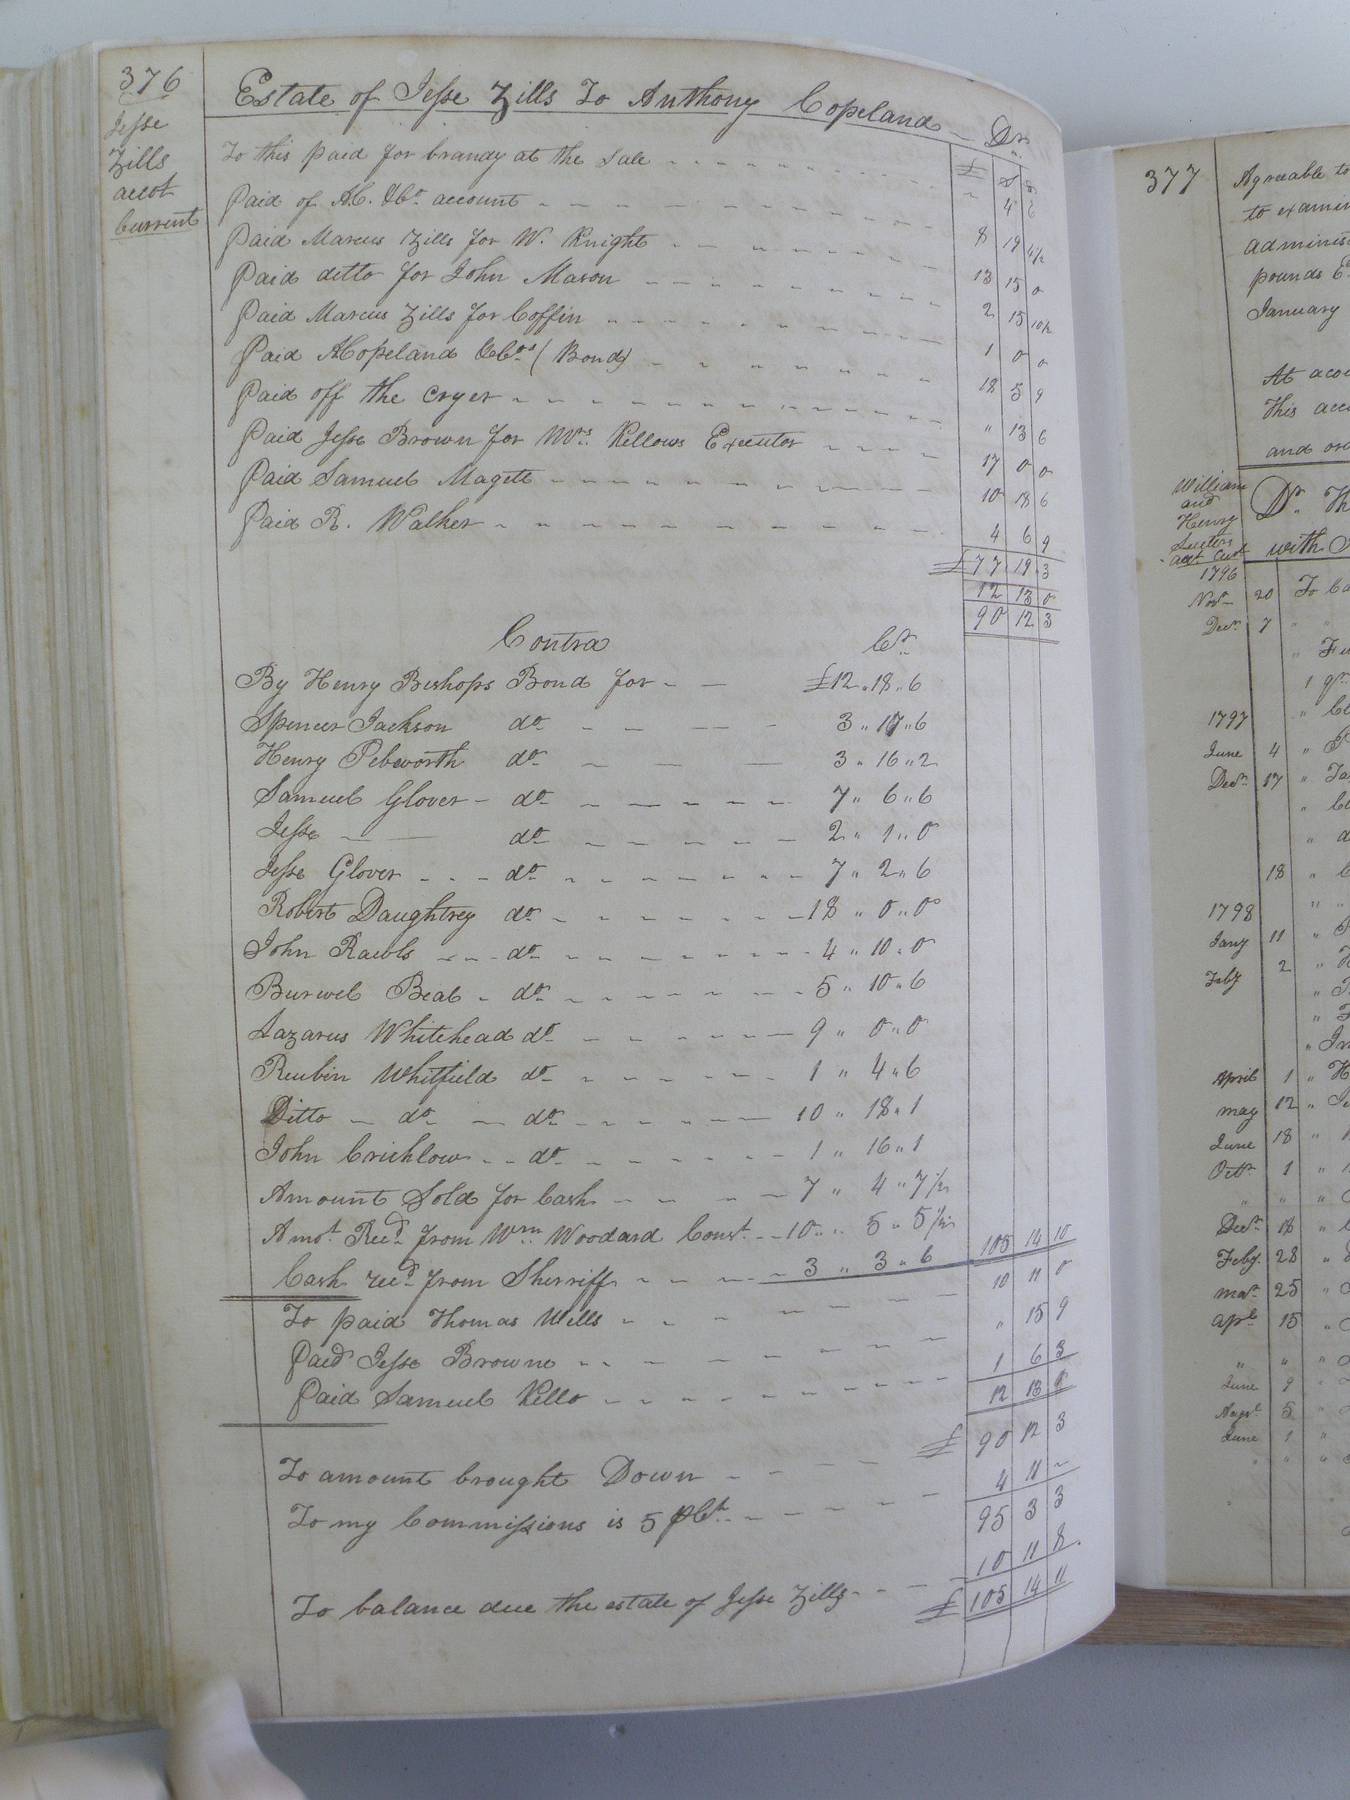 376
Jesse
Zills
accot
Current
Estate of Jesse Zills To Anthony Copeland — Dr.
£ S D
To this paid for brandy at the sale " 4 6
Paid of AC. &Co. account 8 19 4 1/2
Paid Marcus Zills for W. Knight 13 15 0
Paid ditto for John Mason 2 15 10 1/2
Paid Marcus Zills for Coffin 1 0 0
Paid ACopeland &Cos (Bond) 18 5 9
Paid off the cryer " 13 6
Paid Jesse Brown for Mrs. Kellows Executor 17 0 0
Paid Samuel Magett 10 18 6
Paid R. Walker 4 6 9
£ 77 19 3
12 13 0
90 12 3
Contra Cr.
By Henry Bishops Bond for £12 " 18 " 6
Spencer Jackson do 3 " 17 " 6
Henry Pebworth do 3 " 16 " 2
Samuel Glover do 7 " 6 " 6
Jesse do 2 " 1 " 0
Jesse Glover do 7 " 2 " 6
Robert Daughtrey do 18 " 0 " 0
John Rawls do 4 " 10 " 0
Burwel Beal do 5 " 10 " 6
Lazarus Whitehead do 9 " 0 " 0
Reubin Whitfield do 1 " 4 " 6
Ditto do do 10 " 18 " 1
John Crichlow do 1 " 16 " 1
Amount Sold for Cash 7 " 4 " 7 1/2
Amot. Recd. from Wm. Woodard Const. 10 " 5 " 5 1/2
Cash recd. from Sherriff 3 " 3 " 6 105 14 10
To paid Thomas Wells 10 11 0
Paid Jesse Browne " 15 9
Paid Samuel Kello 1 6 3
12 13 0
£ 90 12 3
To amount brought Down 4 11 "
To my Commissions is 5 pCt. 95 3 3
10 11 8
To balance due the estate of Jesse Zills £ 105 14 11
377
Agreable to
to examin
adminis
pounds
January
At
This acc
and or
William
and
Henry
acct Curt
Dr. Th
with
1796
Novr 20 To Ca
Decr. 7
1797
June 4
Decr. 17
18
1798
Jany 11
Feby 2
April 1
may 12
June 18
Octr. 1
Decr. 18
Feby. 28
mar. 25
aprl 15
June 9
Augst. 5
June 1